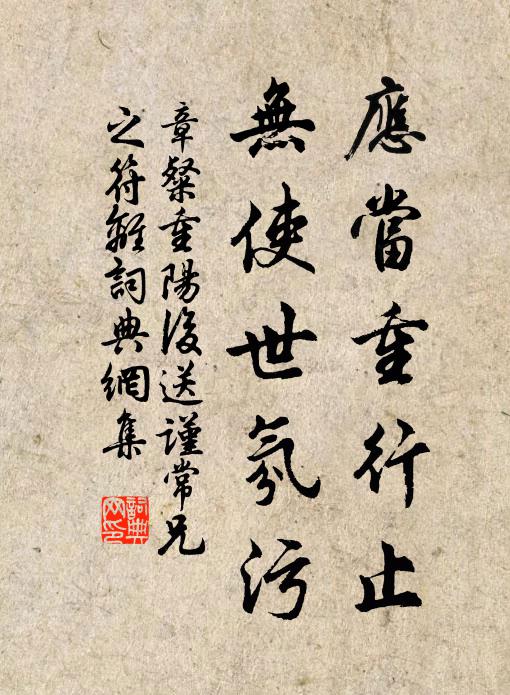 應當重行止
無使世氛污
章粲重陽後送謹常兄
之符離詞典網集
詞典
网印